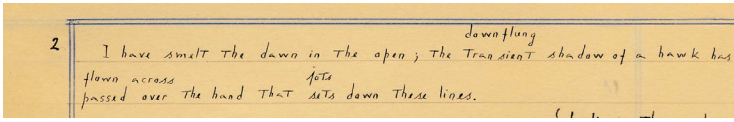 downflung
2 I have smelt the dawn in the open; the transient shadow of a hawk has
flown across jots
passed over the hand that sets down these lines.